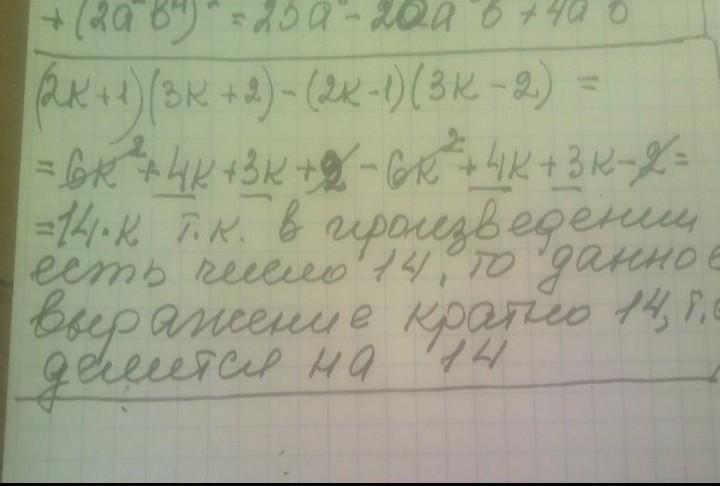 +(2a b⁴)² = 25a - 20a b + 4a b
(2к+1)(3к+2)-(2к-1)(3к-2) =
= 6к² + 4к + 3к + 2 - 6к² + 4к + 3к - 2 =
= 14·к т.к. в произведении
есть число 14, то данное
выражение кратно 14, т.е
делится на 14